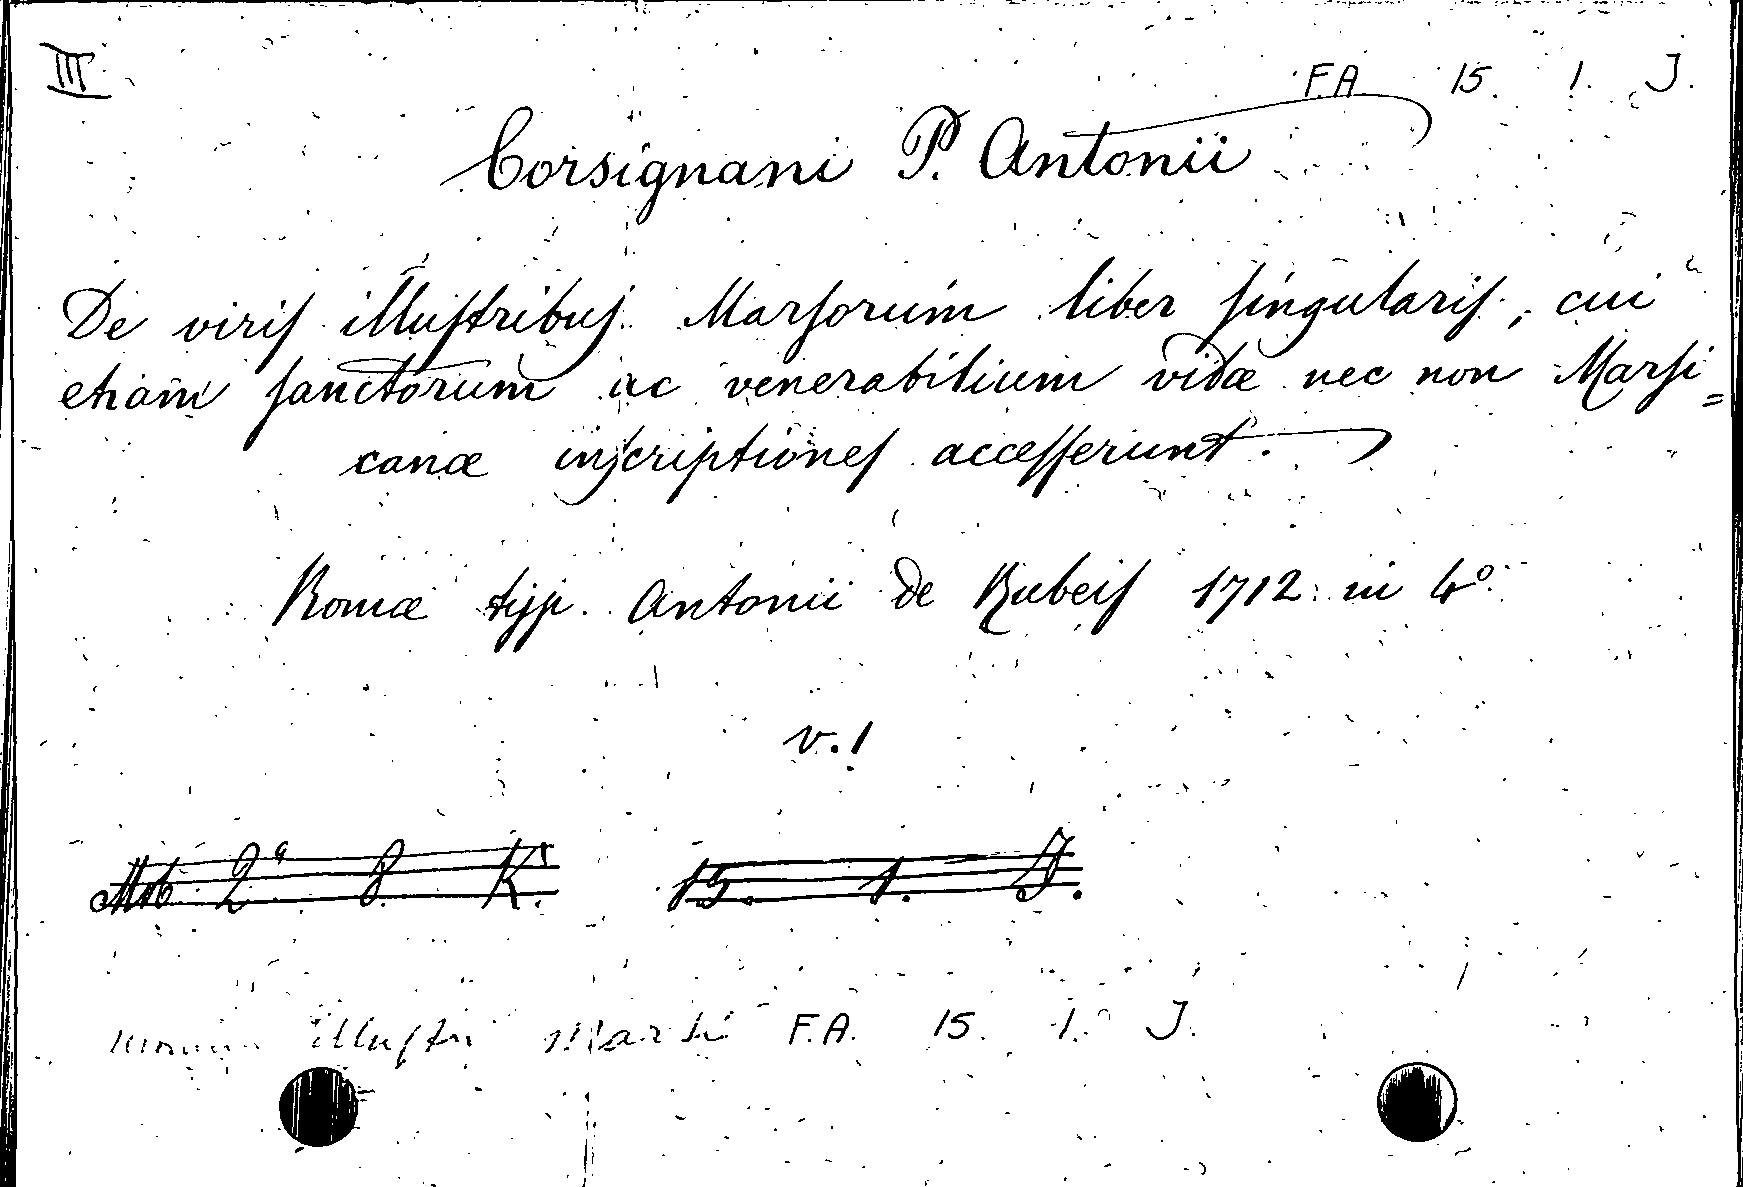 III F.A 15. 1. J.
Corsignani P. Antonii
De viris illustribus Marsorum liber singularis, cui
etiam sanctorum ac venerabilium vidæ nec non Marsi=
canæ inscriptiones accesserunt.
Romæ typ. Antonii de Rubeis 1712 in 4º.
v. 1
Mob 2ª 8 K. 15. 1. J.
illustri Marsi F.A. 15. 1. J.